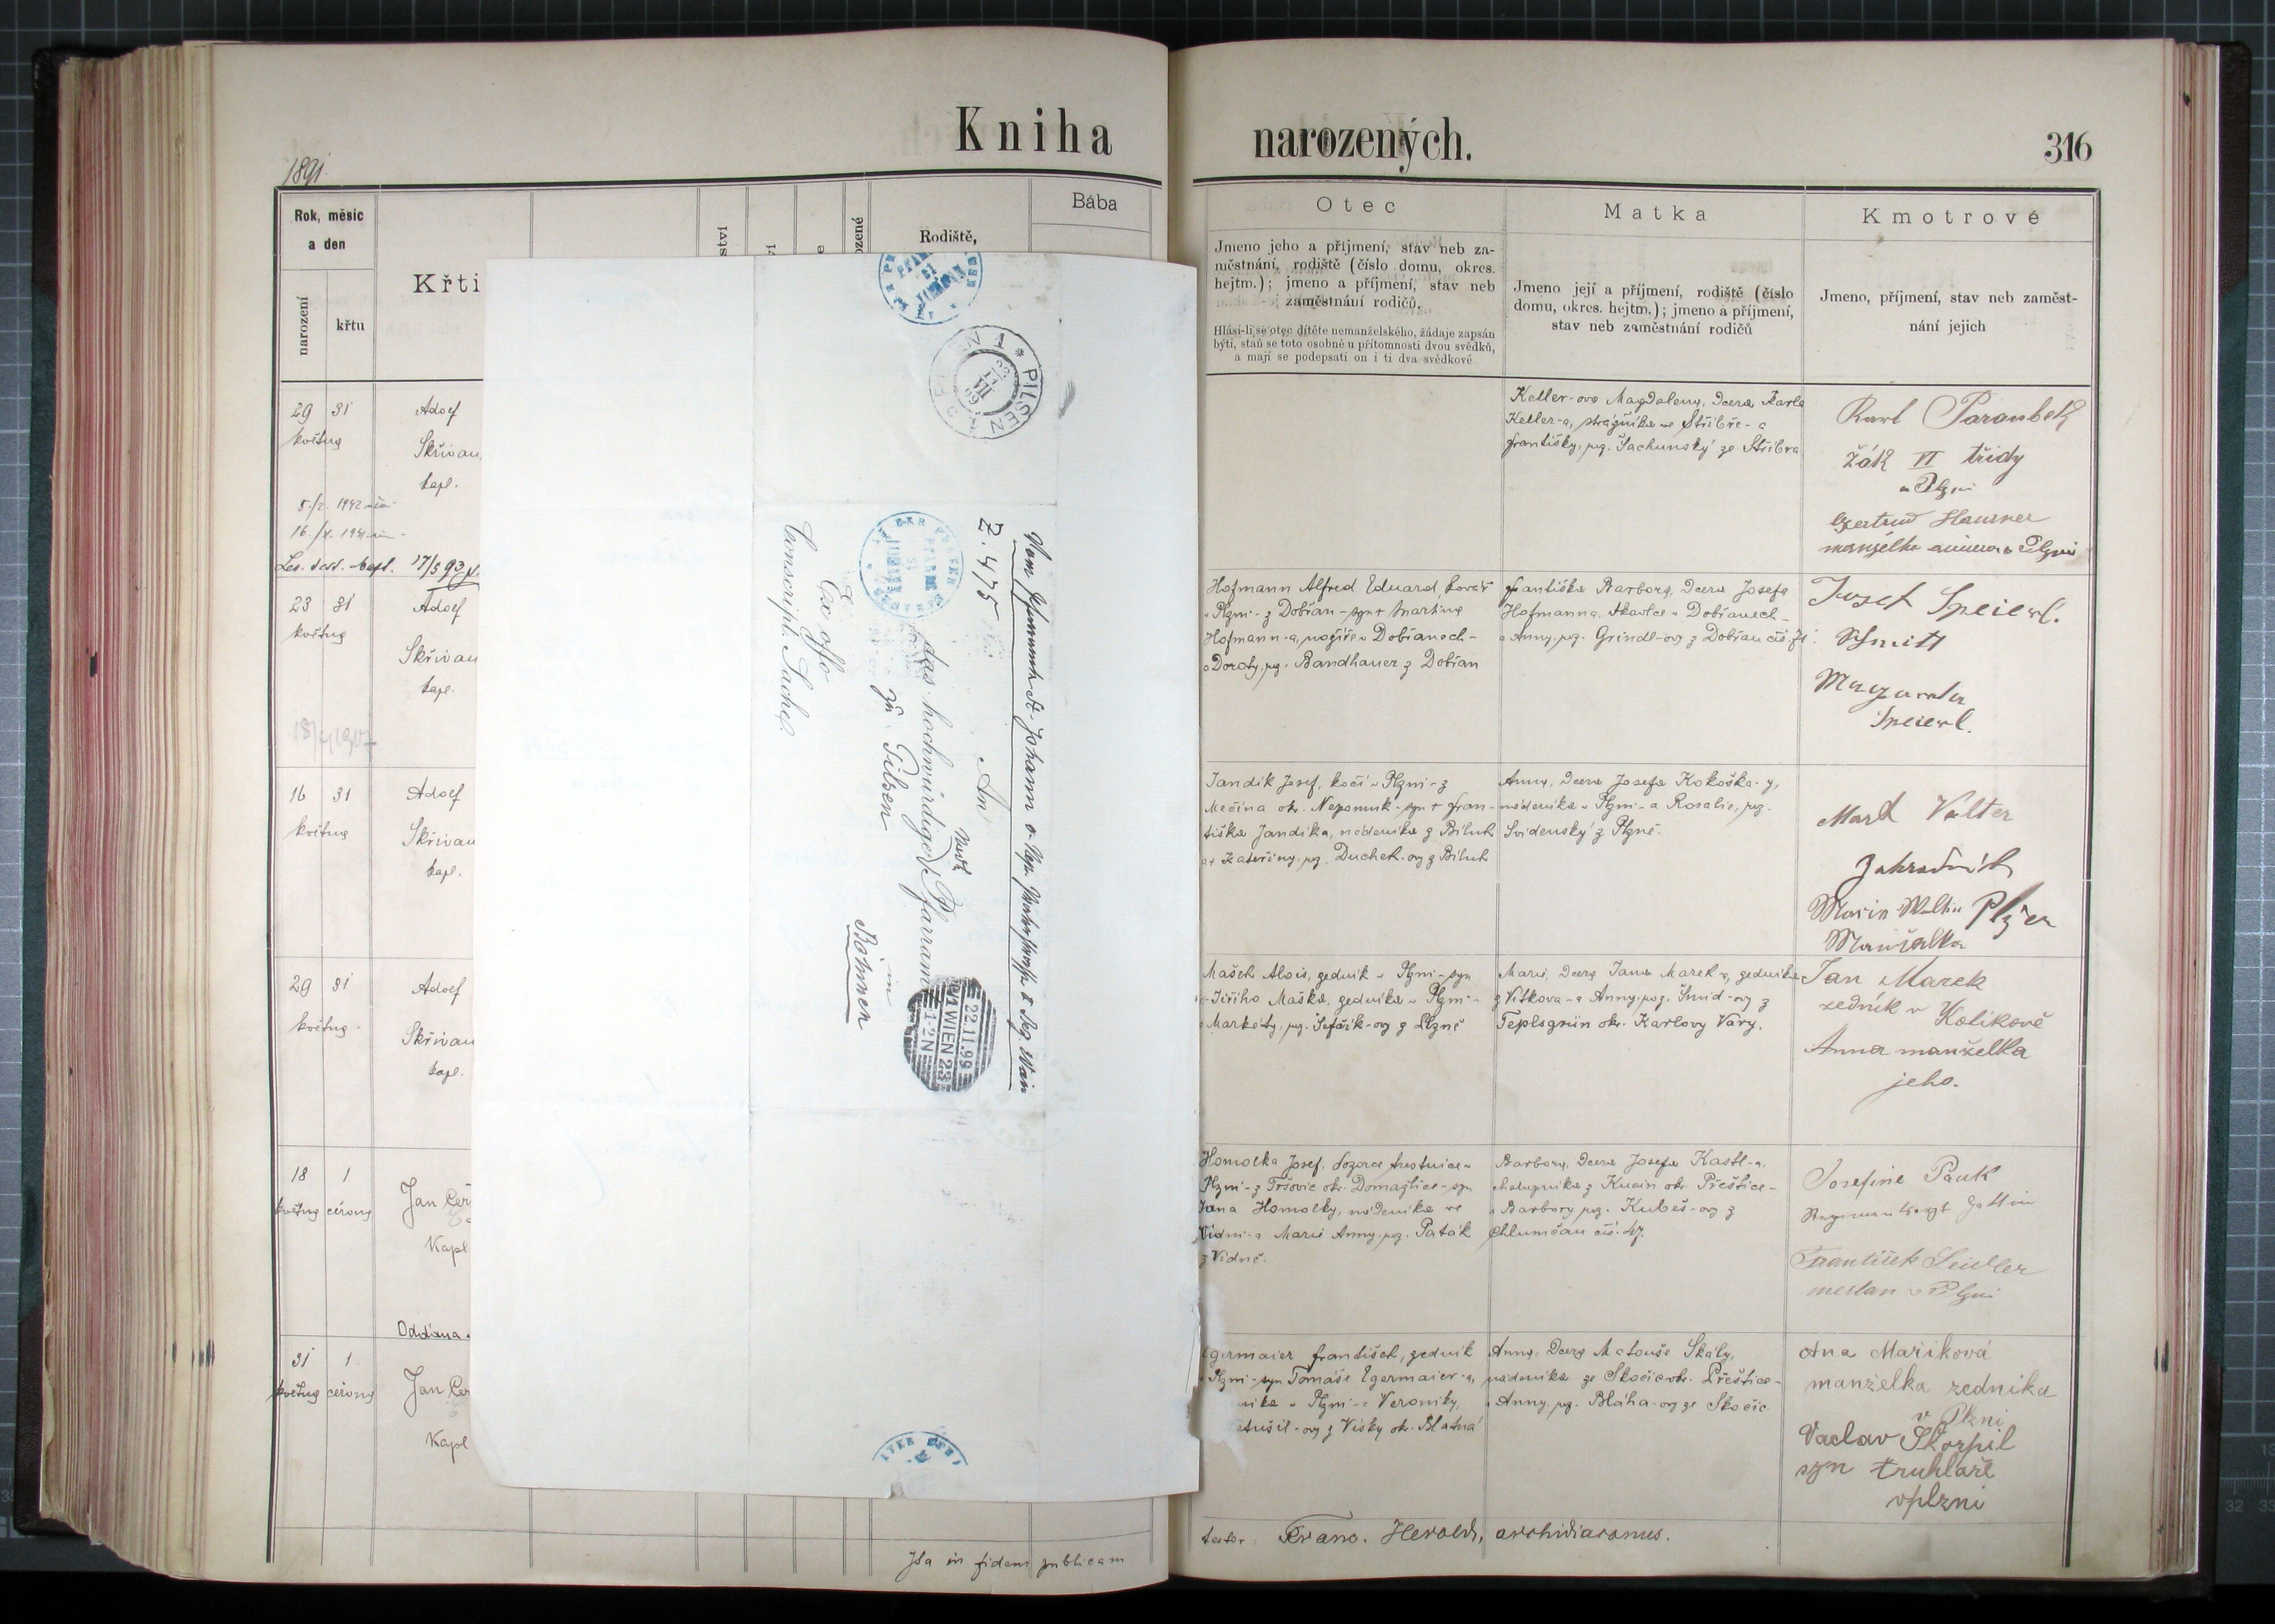 Kniha
narozených.
316
1891
Rok, měsíc
a den
narození
křtu
Křti
ství
ozené
Rodiště,
Bába
Otec
Jmeno jeho a příjmení, stav neb za-
městnání, rodiště (číslo domu, okres.
hejtm.); jmeno a příjmení, stav neb
zaměstnání rodičů.
Hlásí-li se otec dítěte nemanželského, žádaje zapsán
býti, staň se toto osobně u přítomnosti dvou svědků,
a mají se podepsati on i ti dva svědkové
Matka
Jmeno její a příjmení, rodiště (číslo
domu, okres. hejtm.); jmeno a příjmení,
stav neb zaměstnání rodičů
Kmotrové
Jmeno, příjmení, stav neb zaměst-
nání jejich
29 31
května
Adolf
Skřivan
kapl.
17/5 93
Keller-ova Magdalena, dcera Karla
Keller-a, strážníka ve Stříbře - a
Františky, roz. Šachunský ze Stříbra
Karl Paraubek
žák VI třídy
v Plzni
Gertrud Hausner
manželka v Plzni
23 31
května
Adolf
Skřivan
kapl.
18/4 1907
Hofmann Alfred Eduard, kovář
v Plzni - z Dobřan - syn + Martina
Hofmann-a, nožíře v Dobřanech -
a Doroty, roz. Bandhauer z Dobřan
Františka Barbora, dcera Josefa
Hofmanna, tkadlce v Dobřanech -
a Anny, roz. Grindl-ovy z Dobřan čís.
Josef Speierl.
Schmitt
Margareta
Speierl.
16 31
května
Adolf
Skřivan
kapl.
Jandik Josef, kočí v Plzni - z
Mečína okr. Nepomuk - syn + Fran-
tiška Jandíka, nádeníka z Biluk
a + Kateřiny, roz. Duchek-ovy z Biluk
Anna, dcera Josefa Kokoška-y,
nádeníka v Plzni - a Rosalie, roz.
Svidenský z Plzně.
Mard Valter
Zahradník
Marie Plzen
Manželka
29 31
května
Adolf
Skřivan
kapl.
Mašek Alois, zedník v Plzni - syn
Jiřího Maška, zedníka v Plzni -
a Markéty, roz. Šefařík-ovy z Plzně
Marie, dcera Jana Marek-a, zedníka
z Vítkova - a Anny, roz. Šmid-ovy z
Teplsgrün okr. Karlovy Vary.
Jan Marek
zedník v Kotikově
Anna manželka
jeho.
18 1
května června
Jan Čer
Kapl
Oddána
Homolka Josef, dozorce trestnice v
Plzni - z Tršovic okr. Domažlice - syn
Jana Homolky, nádeníka ve
Vídni - a Marie Anny, roz. Paták
z Vídně.
Barbora, dcera Josefa Kastl-a,
chalupníka z Kucin okr. Přeštice -
a Barbory roz. Kubeš-ovy z
Chlumčan čís. 47.
Josefine Pauk
Gattin
František Seidler
mešťan v Plzni
31 1
května června
Jan Čer
Kapl
Egermaier František, zedník
v Plzni - syn Tomáše Egermaier-a,
níka v Plzni - a Veroniky,
z Vísky okr. Blatná
Anna, dcera Matouše Skály,
nádeníka ze Skočic okr. Přeštice -
a Anny, roz. Bláha-ovy ze Skočic
Ana Maříková
manželka zedníka
v Plzni
Vaclav Škorpil
syn truhláře
vplzni
Ita in fidem publicam
testor: Franc. Herold, archidiaconus.
PILSEN 1
Vom Pfarramte St. Johann v. Nep. Praterstrasse
Z. 475
An
das hochwürdige Pfarramt
zu Pilsen
in
Böhmen
Ex offo
Conscript. Sache
WIEN 2/3
22.11.99
1-2 N